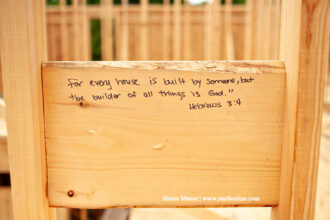 For every house is built by someone, but
the builder of all things is God."
Hebrews 3:4
House-Mates | www.jandloulou.com